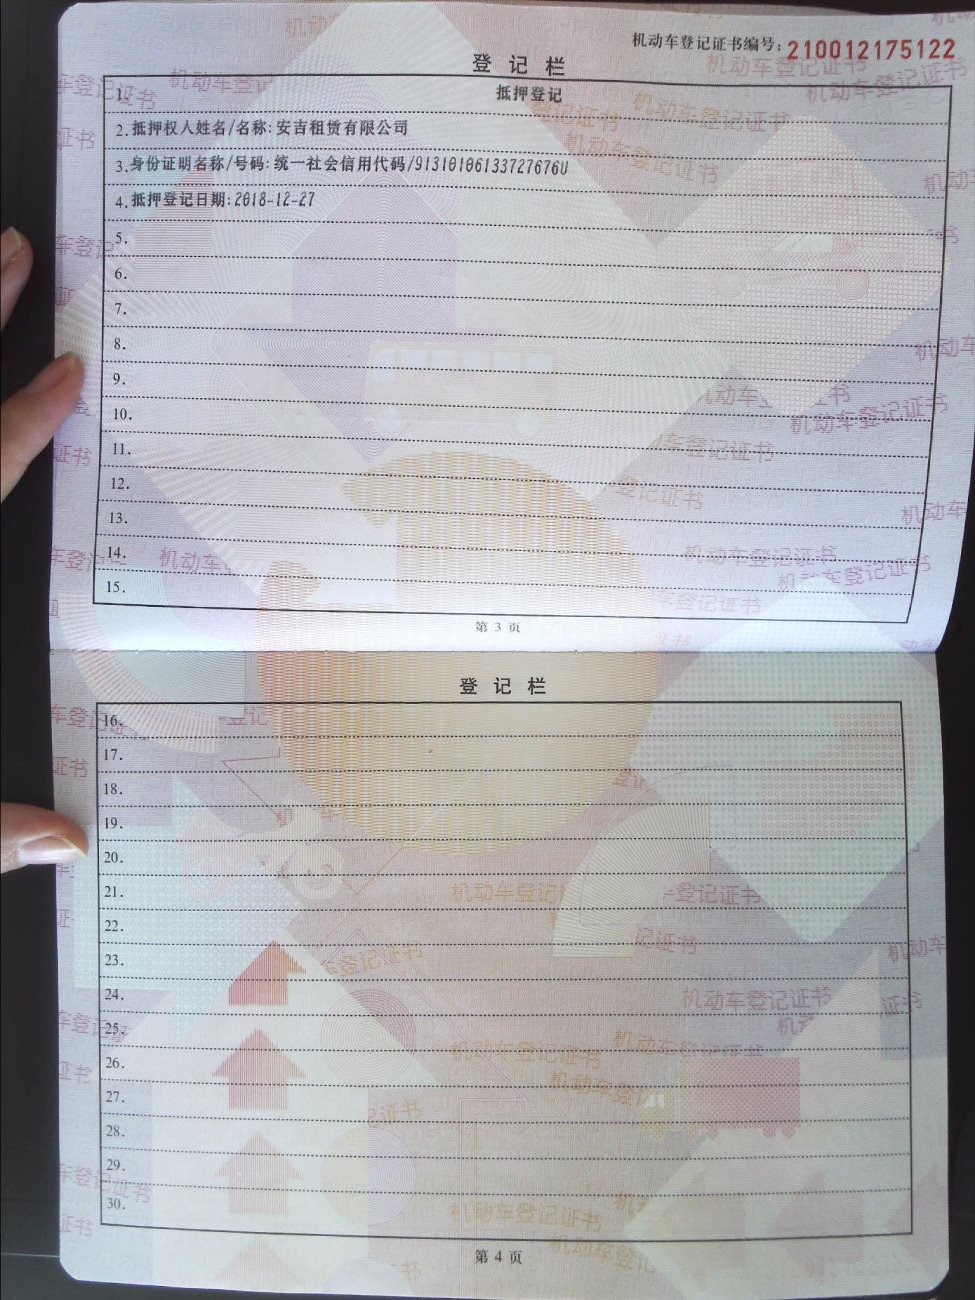 机动车登记证书编号：210012175122
登记栏
1. 抵押登记
2. 抵押权人姓名/名称：安吉租赁有限公司
3. 身份证明名称/号码：统一社会信用代码/91310106133727676U
4. 抵押登记日期：2018-12-27
5.
6.
7.
8.
9.
10.
11.
12.
13.
14.
15.
第 3 页
登记栏
16.
17.
18.
19.
20.
21.
22.
23.
24.
25.
26.
27.
28.
29.
30.
第 4 页